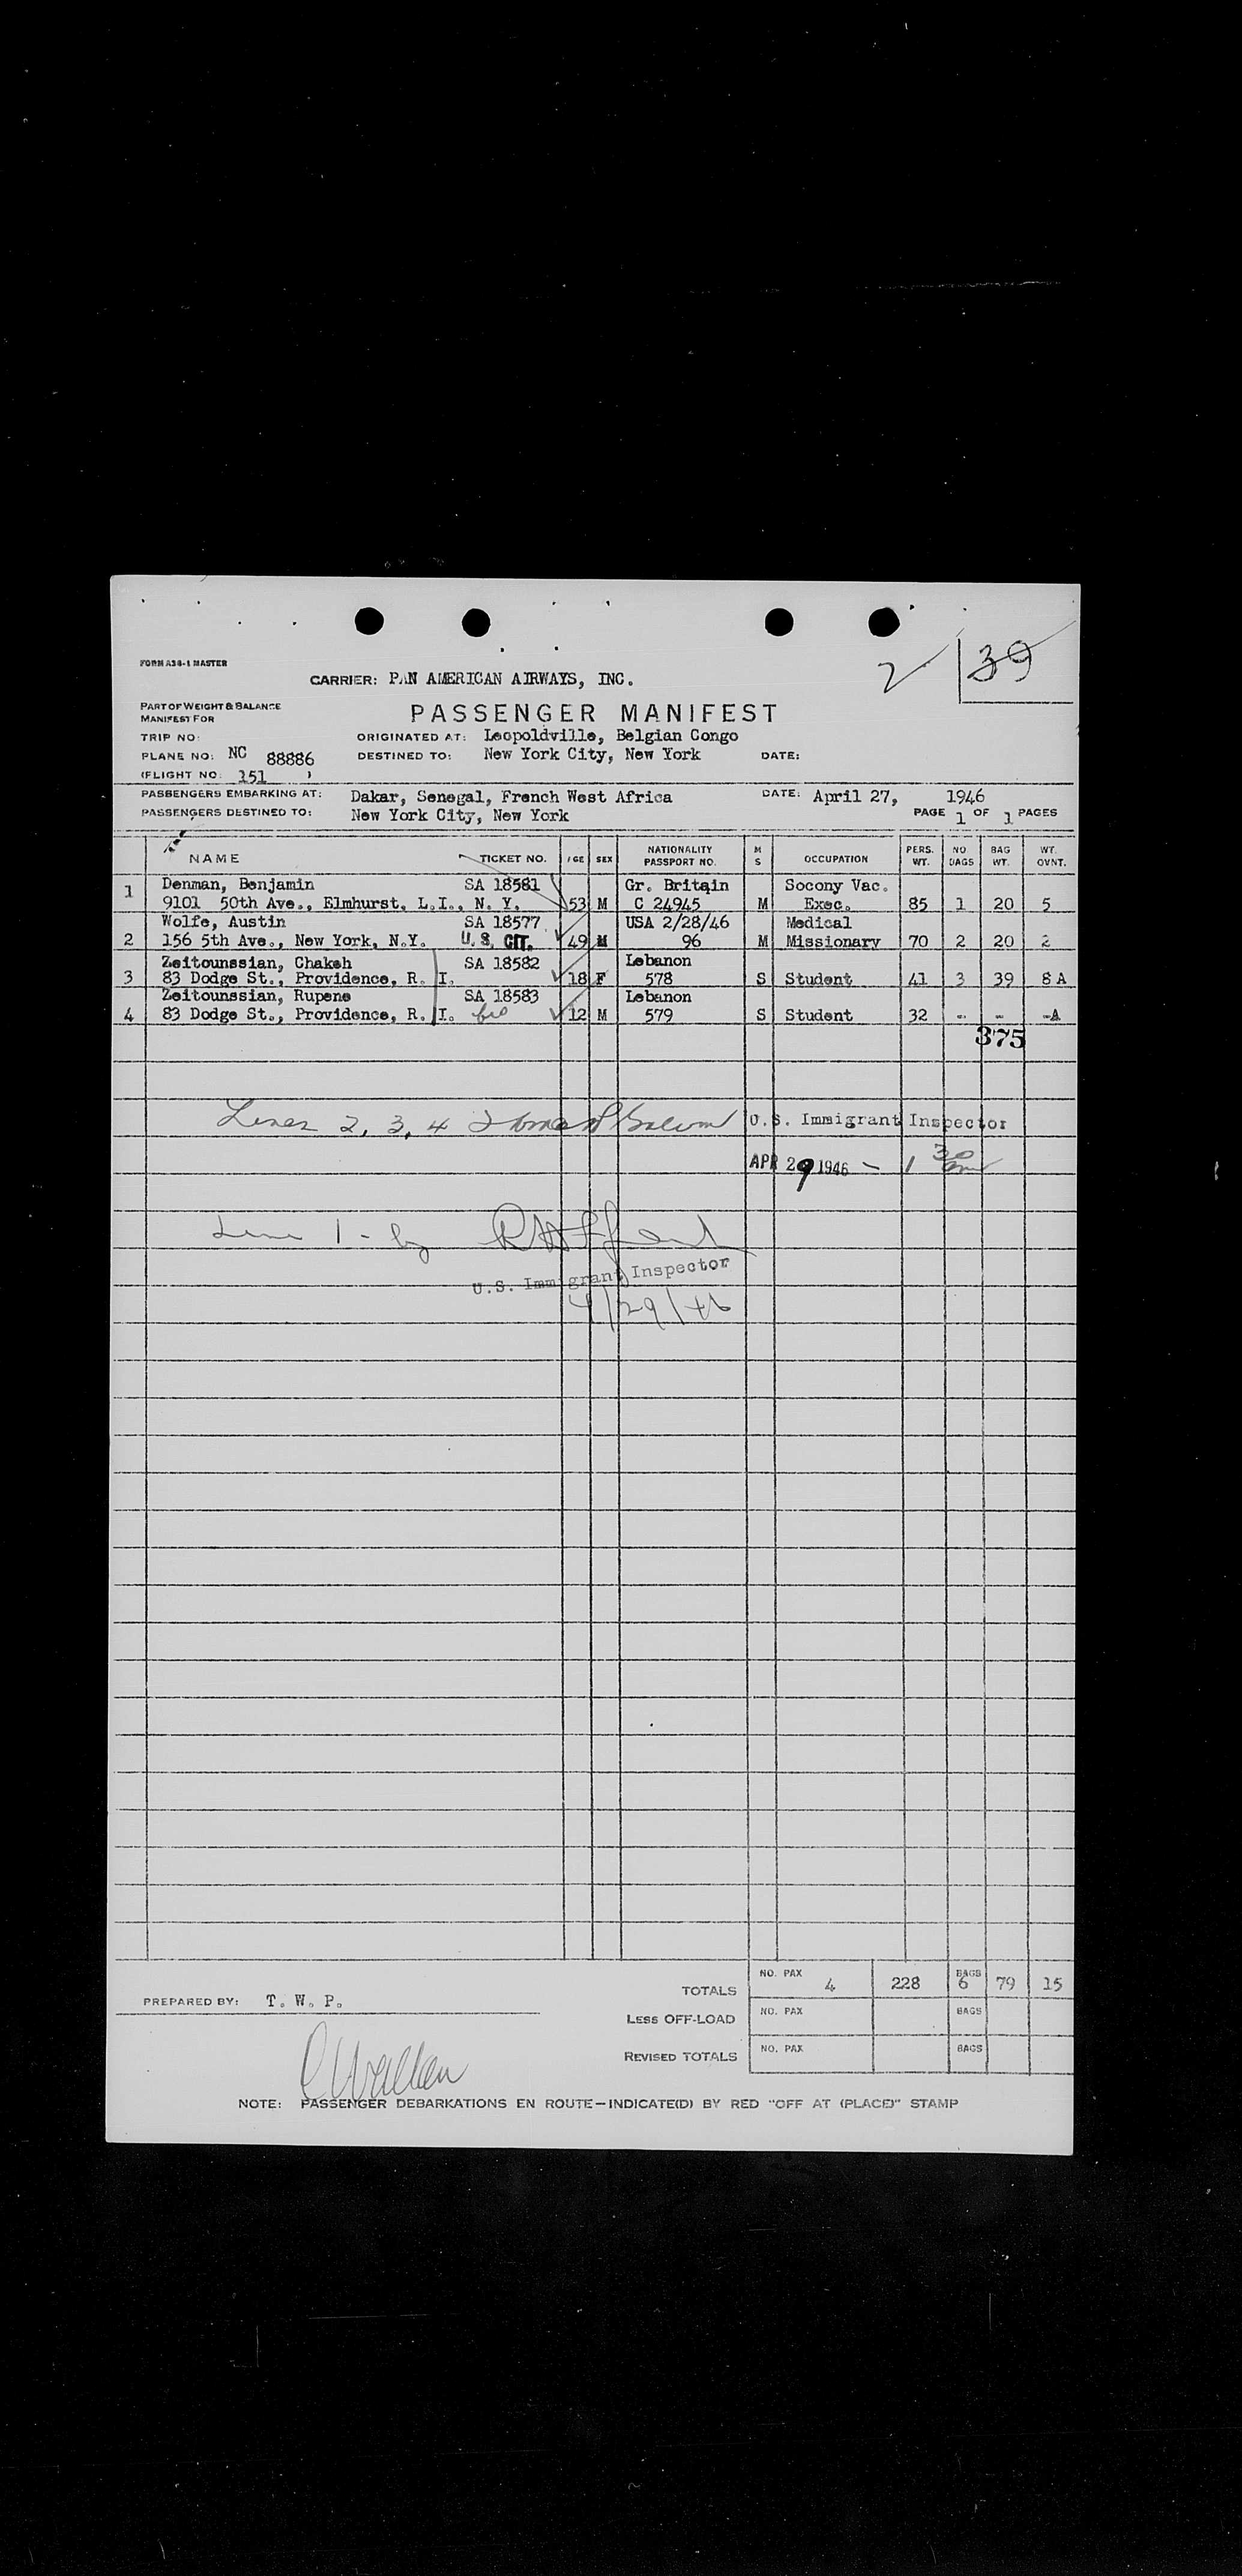 2 39
FORM A38-1 MASTER
CARRIER: PAN AMERICAN AIRWAYS, INC.
PART OF WEIGHT & BALANCE
MANIFEST FOR
PASSENGER MANIFEST
TRIP NO:
ORIGINATED AT: Leopoldville, Belgian Congo
PLANE NO: NC 88886
DESTINED TO: New York City, New York DATE:
(FLIGHT NO. 151 )
PASSENGERS EMBARKING AT: Dakar, Senegal, French West Africa DATE: April 27, 1946
PASSENGERS DESTINED TO: New York City, New York PAGE 1 OF 1 PAGES
NAME TICKET NO. AGE SEX NATIONALITY PASSPORT NO. M S OCCUPATION PERS. WT. NO BAGS BAG WT. WT. OVNT.
1 Denman, Benjamin SA 18581 Gr. Britain Socony Vac.
9101 50th Ave., Elmhurst, L.I., N. Y. 53 M C 24945 M Exec. 85 1 20 5
Wolfe, Austin SA 18577 USA 2/28/46 Medical
2 156 5th Ave., New York, N.Y. U.S. CIT. 49 M 96 M Missionary 70 2 20 2
Zeitounssian, Chakeh SA 18582 Lebanon
3 83 Dodge St., Providence, R. I. 18 F 578 S Student 41 3 39 8 A
Zeitounssian, Rupene SA 18583 Lebanon
4 83 Dodge St., Providence, R. I. bro 12 M 579 S Student 32 - - -A
375
Lines 2, 3, 4 U.S. Immigrant Inspector
APR 29 1946 - 1 30
Line 1 - by
U.S. Immigrant Inspector
4/29/46
TOTALS NO. PAX 4 228 BAGS 6 79 15
PREPARED BY: T. W. P.
LESS OFF-LOAD NO. PAX BAGS
REVISED TOTALS NO. PAX BAGS
NOTE: PASSENGER DEBARKATIONS EN ROUTE—INDICATE(D) BY RED "OFF AT (PLACE)" STAMP